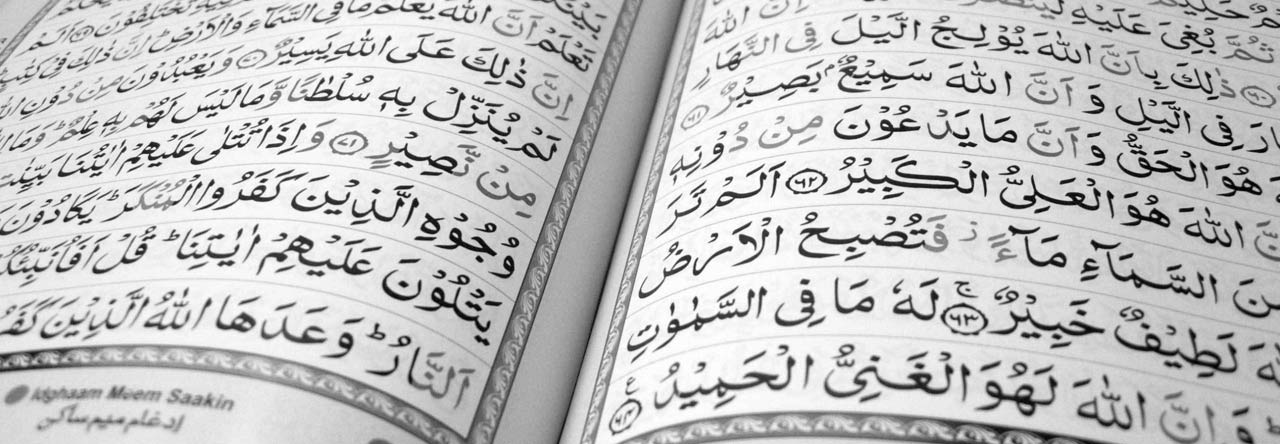 ثُمَّ بُغِىَ عَلَيْهِ اِنَّ اللّٰهَ
ذٰلِكَ بِاَنَّ اللّٰهَ يُوْلِجُ الَّيْلَ فِى النَّهَارِ
فِى الَّيْلِ وَاَنَّ اللّٰهَ سَمِيْعٌۢ بَصِيْرٌ ﴿٦١﴾
هُوَ الْحَقُّ وَاَنَّ مَا يَدْعُوْنَ مِنْ دُوْنِهٖ
اللّٰهَ هُوَ الْعَلِىُّ الْكَبِيْرُ ﴿٦٢﴾ اَلَمْ تَرَ
السَّمَآءِ مَآءً ز فَتُصْبِحُ الْاَرْضُ
لَطِيْفٌ خَبِيْرٌ ۚ ﴿٦٣﴾ لَهٗ مَا فِى السَّمٰوٰتِ
وَاِنَّ اللّٰهَ لَهُوَ الْغَنِىُّ الْحَمِيْدُ ع ﴿٦٤﴾
تَعْلَمْ اَنَّ اللّٰهَ يَعْلَمُ مَا فِى السَّمَآءِ وَالْاَرْضِ ؕ اِنَّ ذٰلِكَ فِىْ كِتٰبٍ
اِنَّ ذٰلِكَ عَلَى اللّٰهِ يَسِيْرٌ ﴿٧٠﴾ وَيَعْبُدُوْنَ مِنْ دُوْنِ
لَمْ يُنَزِّلْ بِهٖ سُلْطٰنًا وَّمَا لَيْسَ لَهُمْ بِهٖ عِلْمٌ ؕ وَمَا
مِنْ نَّصِيْرٍ ﴿٧١﴾ وَاِذَا تُتْلٰى عَلَيْهِمْ اٰيٰتُنَا بَيِّنٰتٍ
وُجُوْهِ الَّذِيْنَ كَفَرُوا الْمُنْكَرَ ؕ يَكَادُوْنَ
يَتْلُوْنَ عَلَيْهِمْ اٰيٰتِنَا ؕ قُلْ اَفَاُنَبِّئُكُمْ
اَلنَّارُ ؕ وَعَدَهَا اللّٰهُ الَّذِيْنَ كَفَرُوْا
Idghaam Meem Saakin
إدغام ميم ساكن